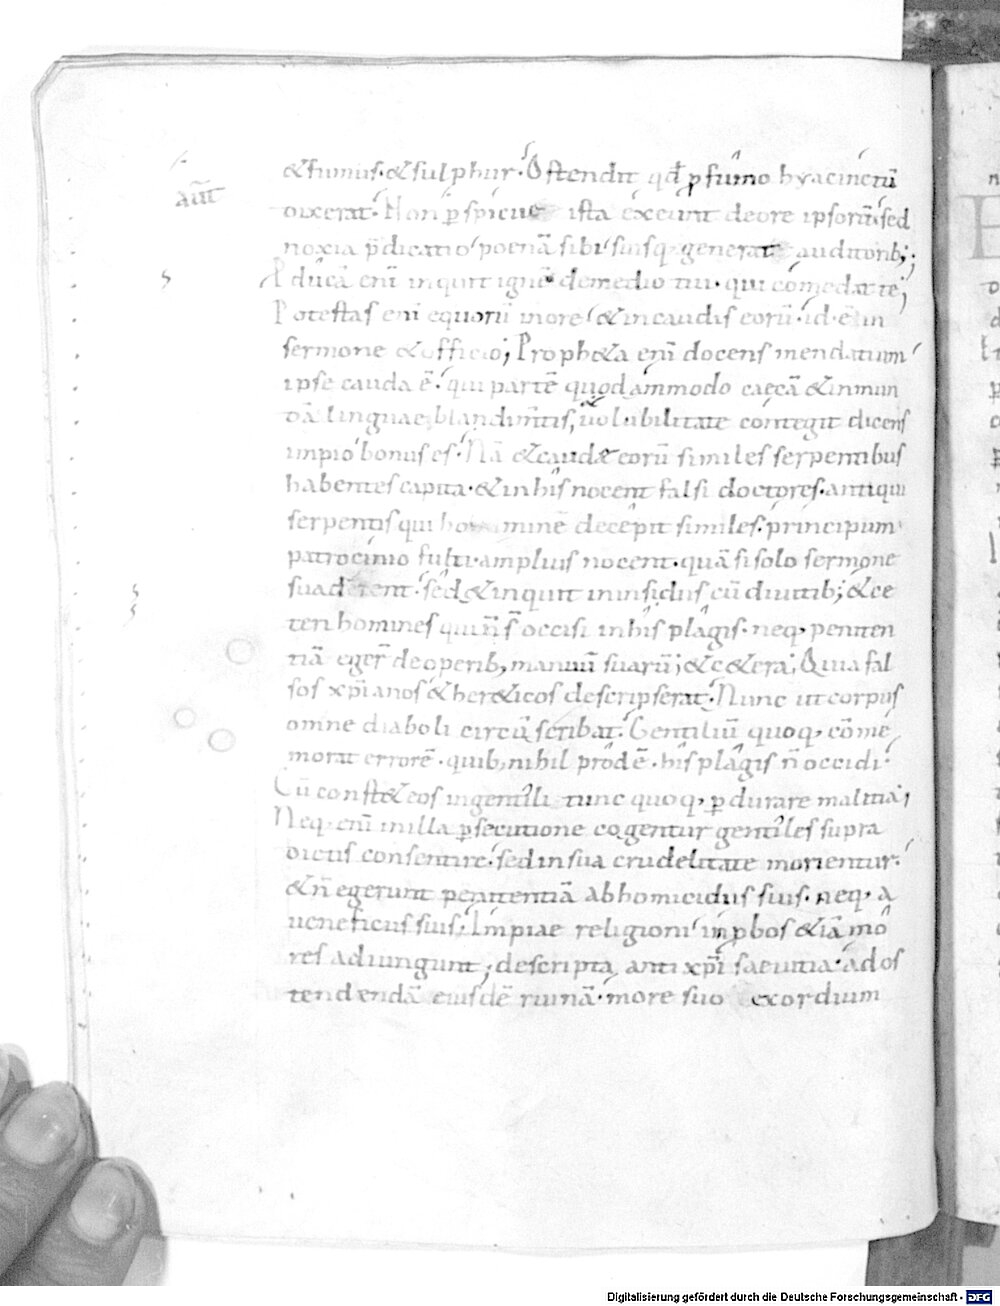 &fumus·&sulphur· Ostendit qđ p fumo hyacinctū
aūt
dixerat· Non pspicue ista exeunt deore ipsorū· sed
noxia p̄dicatio poenā sibi suisq· generat auditorib;;
Ducā enī inquit ignē demedio tui· qui comedat te;
Potestas enī equorū inore &incaudis eorū·id·ē in
sermone &officio; Proph&a enī docens mendatium
ipse cauda ē· qui partē quodammodo caecā &inmun
dā linguae blandimtis, uolubilitate contegit dicens
impio bonus es· Nā &caudae eorū similes serpentibus
habentes capita·&inhis nocent falsi doctores·antiqui
serpentis qui hominē decepit similes·principum
patrocinio fulti·amplius nocent·quā si solo sermone
suaderent·sed&inquit ininsidiis cū diuitib;&ce
teri homines qui n̄ s̄ occisi inhis plagis· neq· peniten
tiā eger̄ deoperib, manuū suarū;&c&era; Quia fal
sos xp̄ianos &her&icos descripserat· Nunc ut corpus
omne diaboli circūscribat· Gentiliū quoq· cōme
morat errorē·quib, nihil prodē·his plagis n̄ occidi·
Cū const&eos ingentili tunc quoq· pdurare malitia;
Neq· enī inilla psecutione cogentur gentiles supra
dictis consentire·sed insua crudelitate morientur·
&n̄ egerunt penitentiā abhomicidiis suis· neq· a
ueneficiis suis· Impiae religioni inpbos &iā mo
res adiungunt; descripta anti xp̄i saeuitia·ados
tendendā eiusdē ruinā·more suo exordium
Digitalisierung gefördert durch die Deutsche Forschungsgemeinschaft - DFG